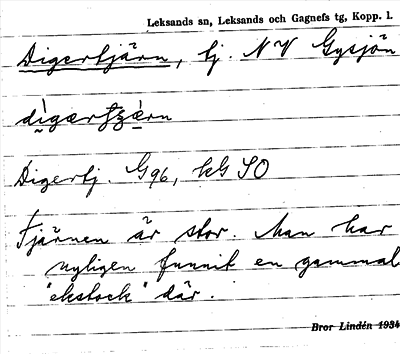 Leksands sn, Leksands och Gagnefs tg, Kopp. l.
Digertjärn, tj. NV Gysjön
Digertj. G96, kG SO
Tjärnen är stor. Man har
nyligen funnit en gammal
"ekstock" där.
Bror Lindén 1934